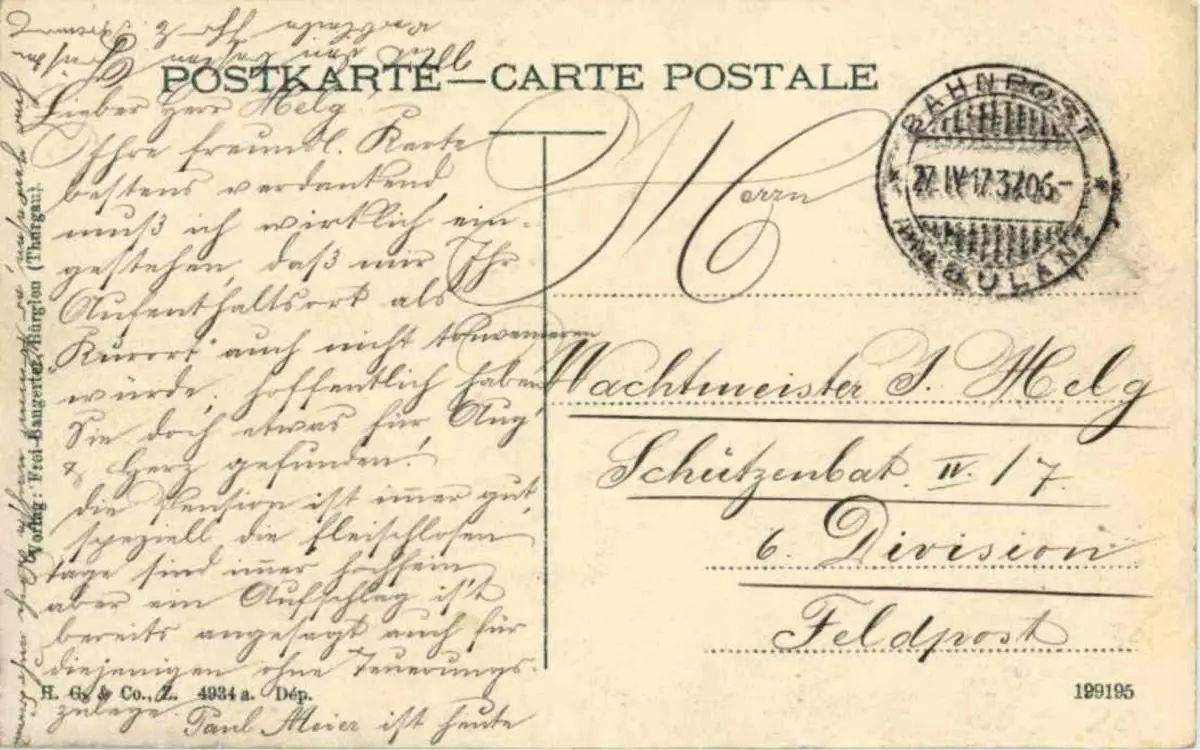 POSTKARTE — CARTE POSTALE
Lieber Herr Helg!
Ihre freundl. Karte
bestens verdankend,
muß ich wirklich ein-
gestehen, daß mir Ihr
Aufenthaltsort als
"Kurort" auch nicht konvenieren
würde, hoffentlich haben
Sie doch etwas für Aug'
& Herz gefunden!
Die Pension ist immer gut,
speziell die fleischlosen
Tage sind immer hochfein
aber ein Aufschlag is't
bereits angesagt auch für
diejenigen ohne Teuerungs-
zulage. Paul Meier ist heute
BAHNPOST
27.IV.17.3706-
AMBULANT
Herrn
Wachtmeister J. Helg
Schützenbat. IV. / 7.
6. Division
Feldpost
Verlag: Frei-Bangerter, Bürglen (Thurgau).
H. G. & Co., Z. 4934 a. Dép.
199195